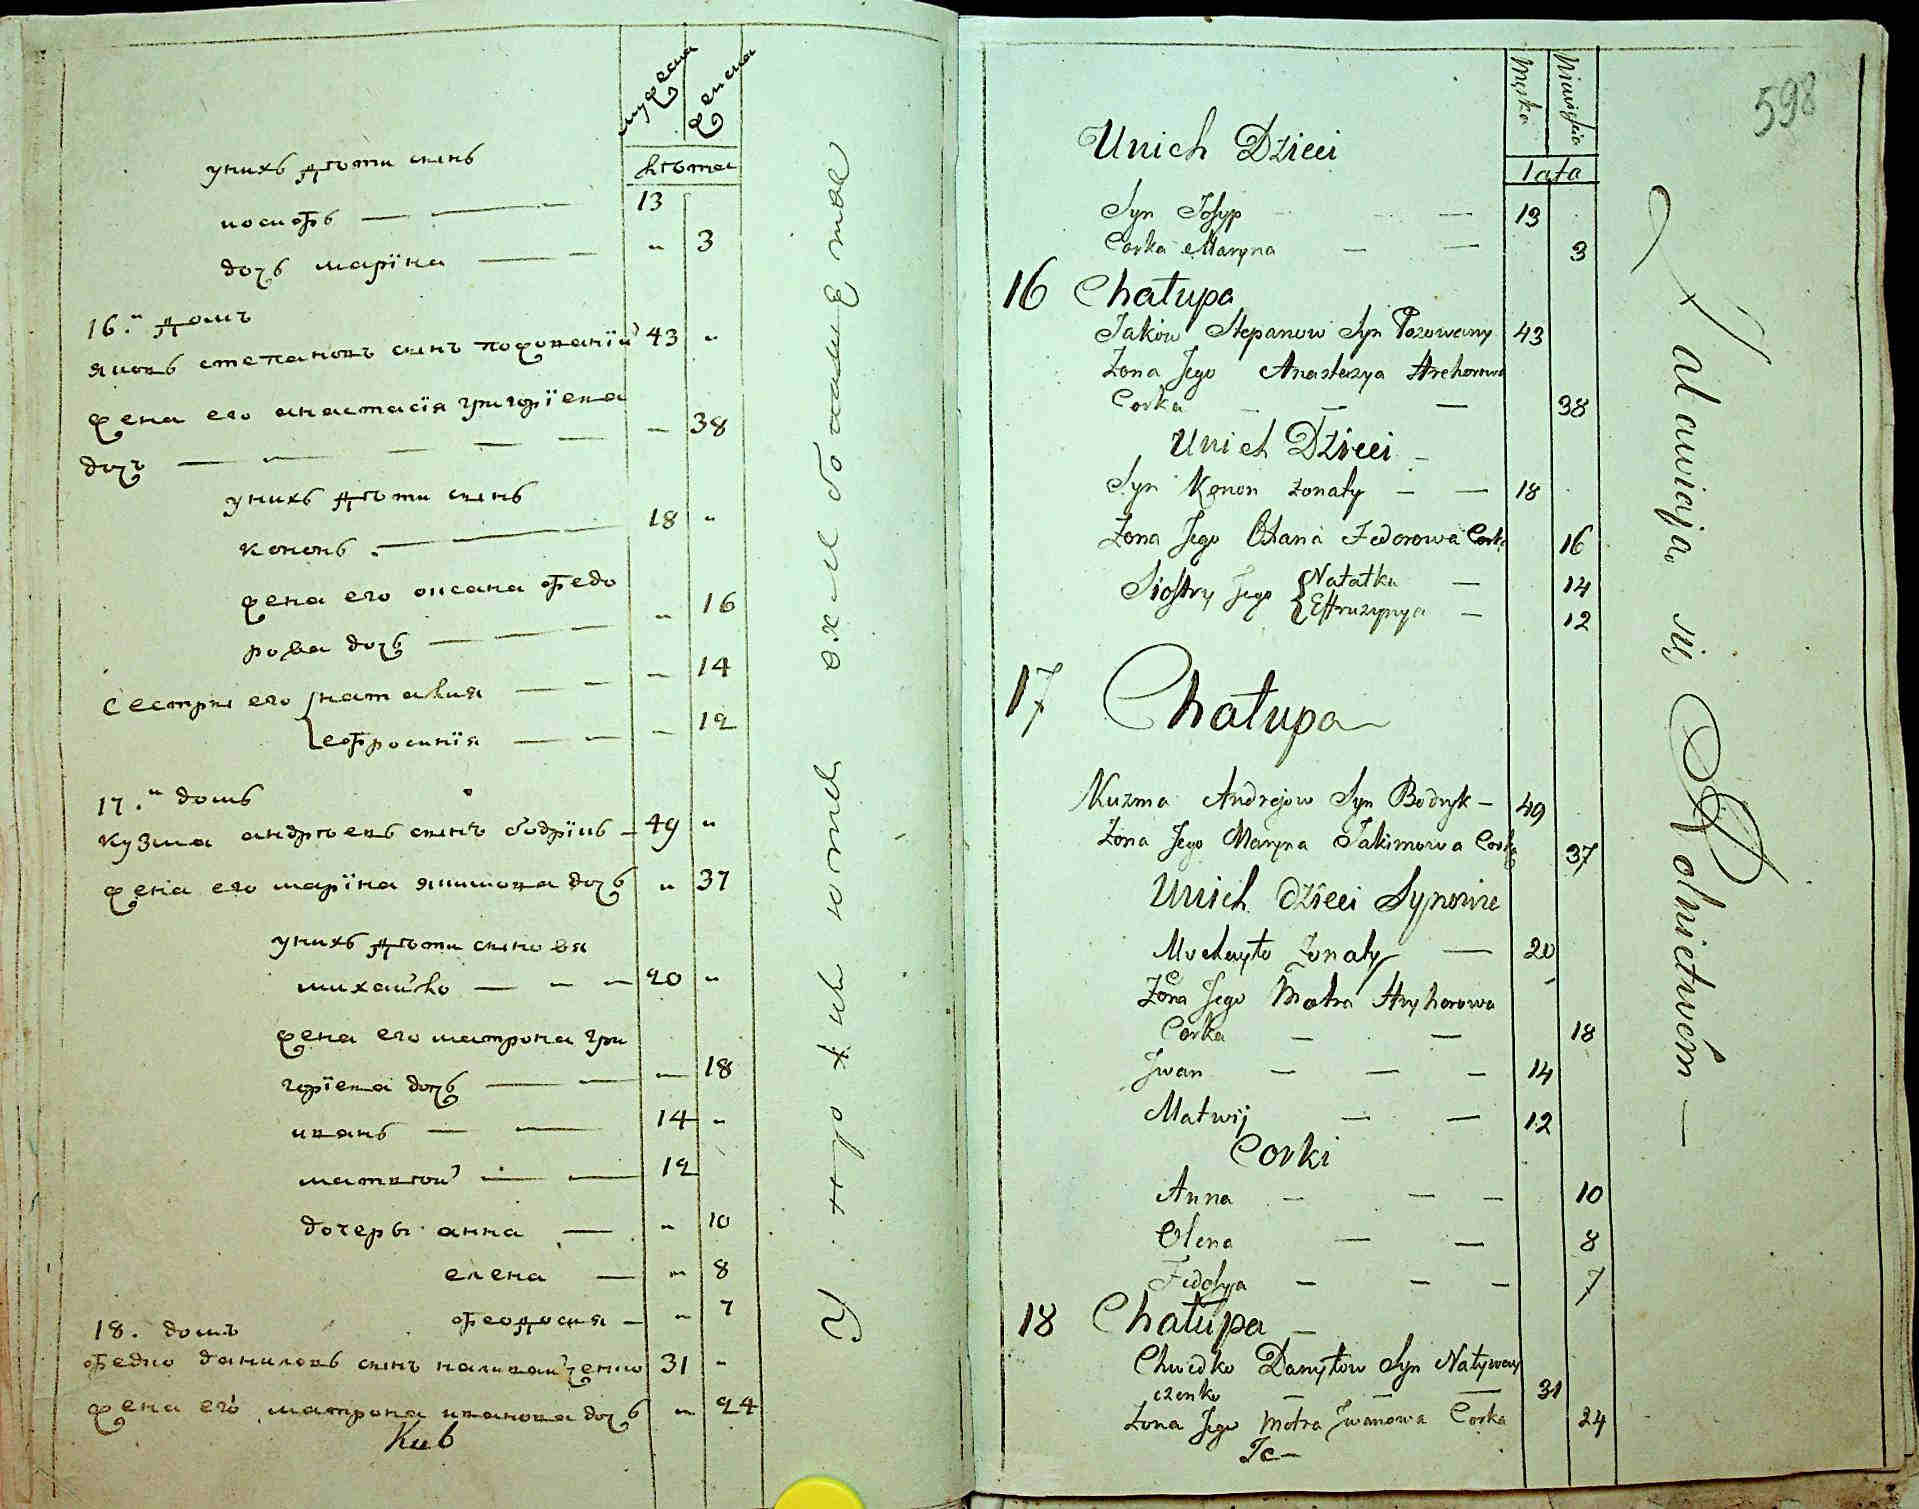 мужеска
женска
лѣта
унихъ дѣти сынъ
иосифъ — — — 13
дочь марїна — — " 3
16.й домъ
яковъ степановъ сынъ позованїй 43 "
жена его анастасїя григорїева
дочъ — — — — — 38
унихъ дѣти сынъ
кононъ . — — 18 "
жена его оксана федо
рова дочь — — — " 16
Сестры его наталия — — — 14
ефросинїя — — — 12
17.й домъ
кузма андрѣевъ сынъ бодрїкъ — 49 "
жена его марїна якимова дочь " 37
унихъ дѣти сыновя
михайло — — — 20 "
жена его матрона гри
горїева дочь — — — 18
иванъ — — 14 "
матвѣй — — 12
дочеры анна — " 10
елена — " 8
феодосия — " 7
18. домъ
федко даниловъ сынъ наливайченко 31 "
жена его матрона иванова дочь " 24
Męska
Niewieścia
Lata
598
Unich Dzieci
Syn Josyp — 13
Corka Maryna — — 3
16 Chałupa
Jaków Stepanow Syn Pozowany 43
Zona Jego Anastazya Hrehorowa
Corka — — — 38
Unich Dzieci —
Syn Konon zonaty — — 18
Zona Jego Oxana Fedorowa Corka 16
Siostry Jego Natalka — 14
Effruzynya — 12
17 Chałupa
Kuzma Andrejow Syn Bodryk — 49
Zona Jego Maryna Jakimowa Corka 37
Unich Dzieci Synowie
Mychayło Zonaty — 20
Zona Jego Motra Hryhorowa
Corka — — 18
Jwan — — — 14
Matwij — — 12
Corki
Anna — — — 10
Olena — — 8
Fedosya — — — 7
18 Chałupa —
Chwedko Danyłow Syn Nalyway
czenko — — — 31
Zona Jego Motra Jwanowa Corka 24
Je—
Załawiają się Rolnictwém —